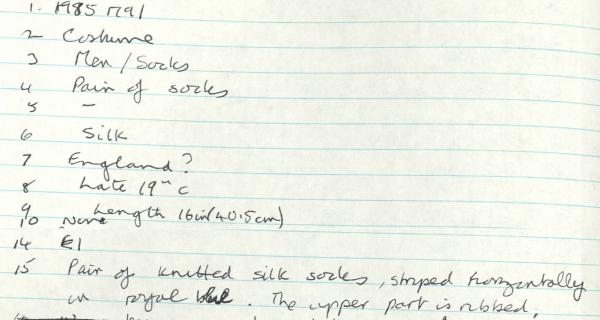 1. 1985 1791
2 Costume
3 Men / Socks
4 Pair of socks
5 -
6 Silk
7 England?
8 Late 19th c
9 Length 16in (40.5cm)
10 None
14 £1
15 Pair of knitted silk socks, striped horizontally
in royal blue. The upper part is ribbed,